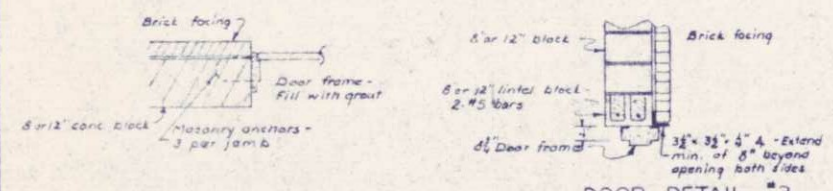 Brick facing
Door frame -
Fill with grout
8 or 12" conc. block
Masonry anchors -
3 per jamb
8 or 12" block
Brick facing
8 or 12" lintel block -
2-#5 bars
Door frame
3½" x 3½" x ¼" ∠ - Extend
min. of 8" beyond
opening both sides
DOOR DETAIL #3